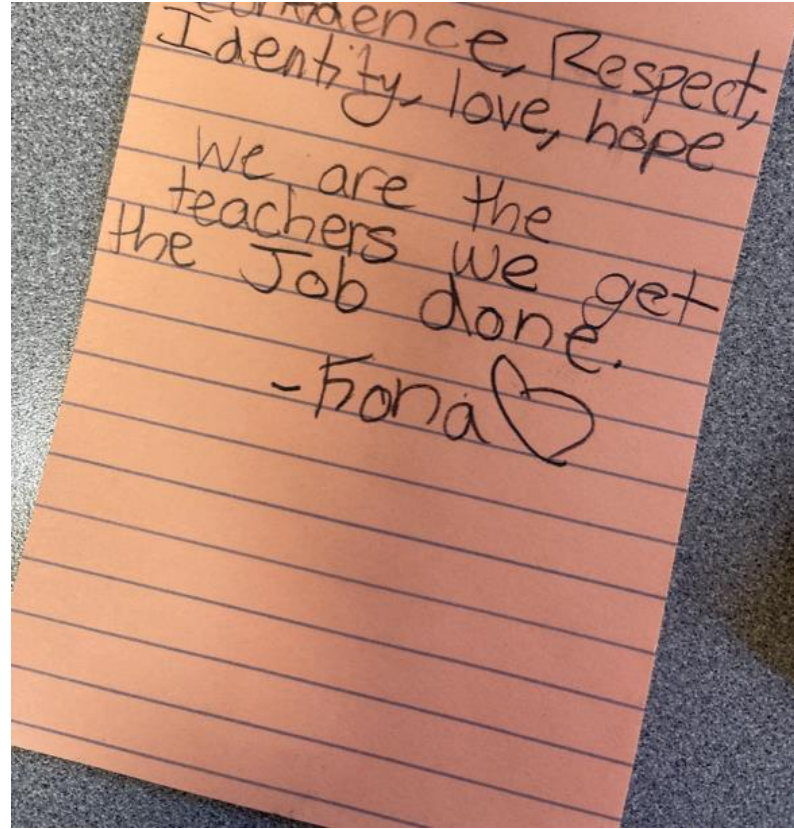 Confidence, Respect,
Identity, love, hope
We are the
teachers we get
the Job done.
-Fiona